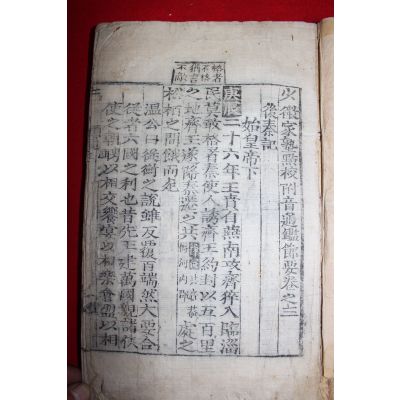 少微家塾點校附音通鑑節要卷之三
後秦記
始皇帝下
庚辰二十六年王賁自燕南攻齊猝入臨淄
民莫敢格者秦使人誘齊王約封以五百里
之地齊王遂降秦遷之共處之
松栢之間餓而死
溫公曰從衡之說雖反覆百端然大要合
從者六國之利也昔先王建萬國親諸侯
使之朝聘以相交饗宴以相樂會盟以相
格者
不格
猶言
不敵